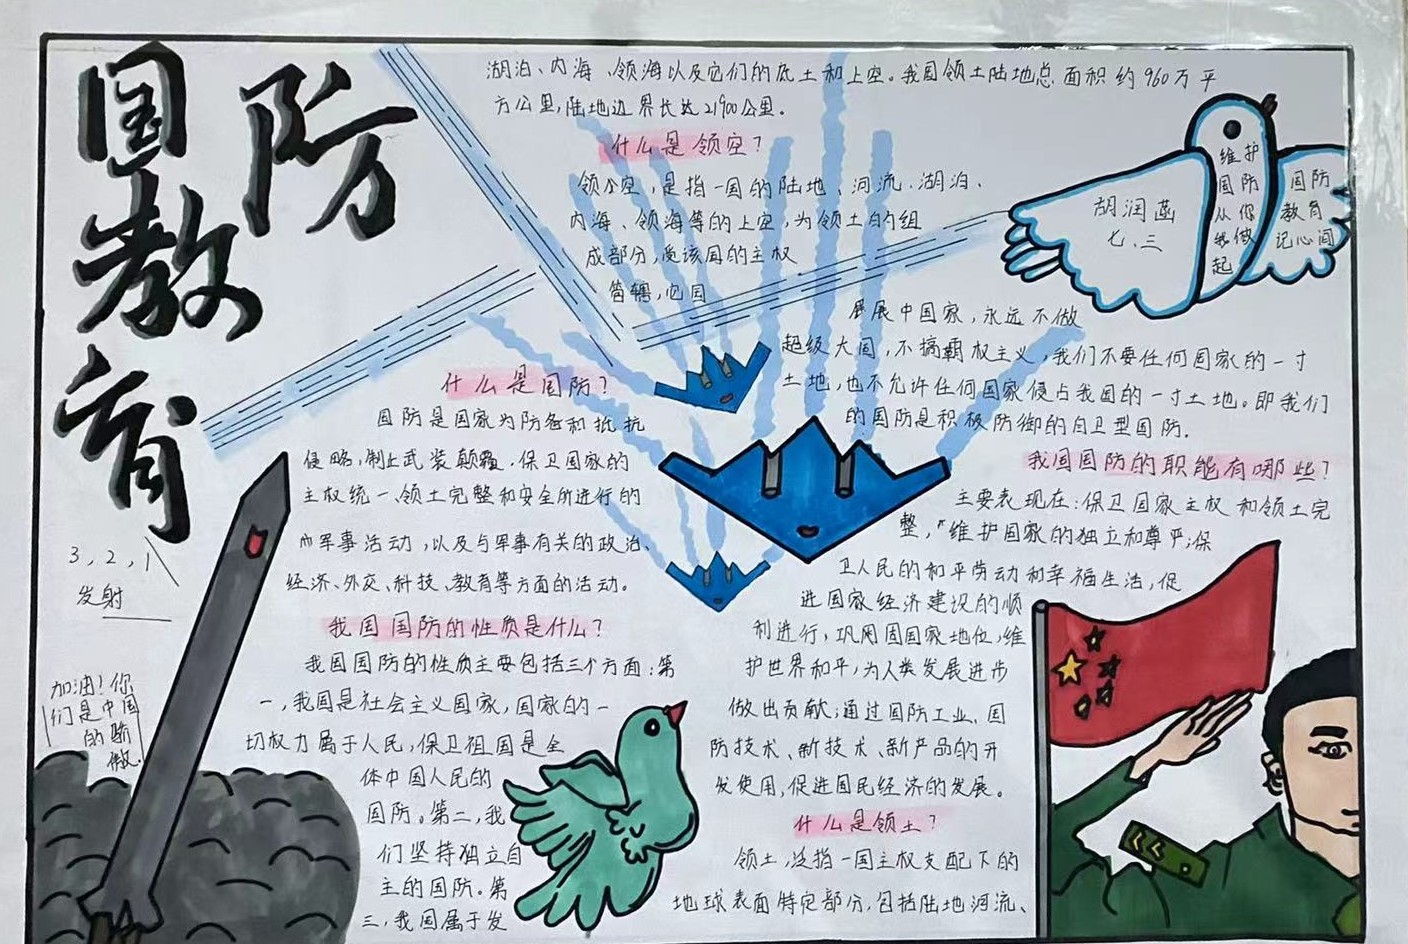 国防
教育
什么是国防？
国防是国家为防备和抵抗
侵略，制止武装颠覆，保卫国家的
主权统一、领土完整和安全所进行的
军事活动，以及与军事有关的政治、
经济、外交、科技、教育等方面的活动。
我国国防的性质是什么？
我国国防的性质主要包括三个方面：第
一，我国是社会主义国家，国家的一
切权力属于人民，保卫祖国是全
体中国人民的
国防。第二，我
们坚持独立自
主的国防。第
三，我国属于发
展展中国家，永远不做
超级大国，不搞霸权主义，我们不要任何国家的一寸
土地，也不允许任何国家侵占我国的一寸土地。即我们
的国防是积极防御的自卫型国防.
我国国防的职能有哪些？
主要表现在：保卫国家主权和领土完
整，维护国家的独立和尊严；保
卫人民的和平劳动和幸福生活，促
进国家经济建设的顺
利进行，巩固国家地位，维
护世界和平，为人类发展进步
做出贡献；通过国防工业、国
防技术、新技术、新产品的开
发使用，促进国民经济的发展。
什么是领土？
领土，泛指一国主权支配下的
地球表面特定部分，包括陆地河流、
湖泊、内海、领海以及它们的底土和上空。我国领土陆地总面积约960万平
方公里，陆地边界长达21900公里。
什么是领空？
领空，是指一国的陆地、河流、湖泊、
内海、领海等的上空，为领土的组
成部分，受该国的主权
管辖，
维护
国防
从你
我做
起
国防
教育
记心间
胡润菡
七、三
3，2，1
发射
加油！你
们是中国
的骄
傲.